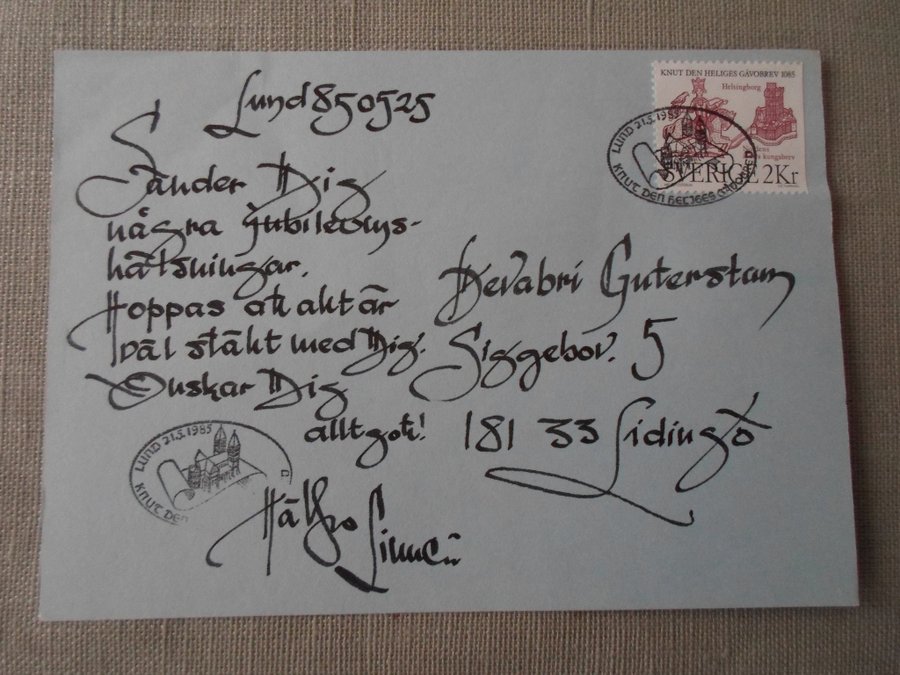 Lund 850525
Sänder Dig
några jubileums-
hälsningar.
Hoppas att allt är
väl ställt med Dig.
Önskar Dig
allt gott!
Hälsn
KNUT DEN HELIGES GÅVOBREV 1085
Helsingborg
kungsbrev
SVERIGE 2Kr
LUND 21.5.1985
KNUT DEN HELIGES GÅVOBREV
Guterstam
Siggebov. 5
181 33 Lidingö
LUND 21.5.1985
KNUT DEN